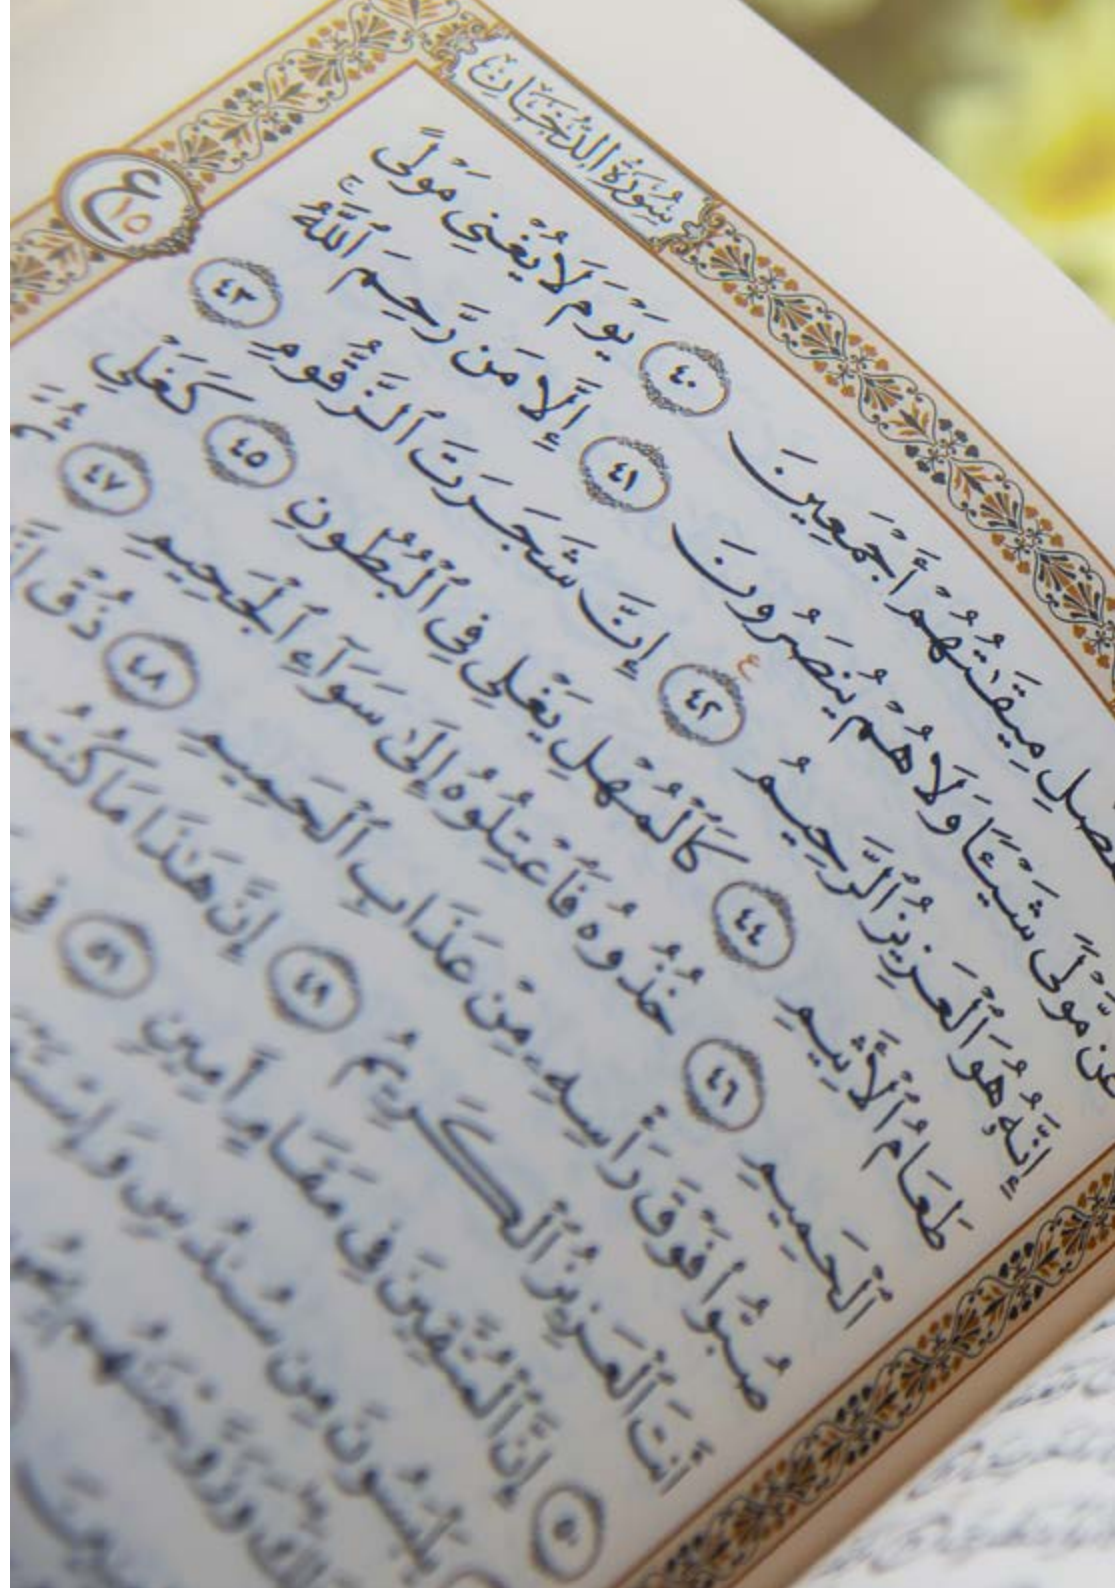 سُورَةُ الدُّخَانِ
ع ١٥
مِيقَٰتُهُمْ أَجْمَعِينَ ٤٠ يَوْمَ لَا يُغْنِي مَوْلًى
عَن مَّوْلًى شَيْـًٔا وَلَا هُمْ يُنصَرُونَ ٤١ إِلَّا مَن رَّحِمَ ٱللَّهُ ۚ
إِنَّهُۥ هُوَ ٱلْعَزِيزُ ٱلرَّحِيمُ ٤٢ إِنَّ شَجَرَتَ ٱلزَّقُّومِ ٤٣
طَعَامُ ٱلْأَثِيمِ ٤٤ كَٱلْمُهْلِ يَغْلِي فِي ٱلْبُطُونِ ٤٥ كَغَلْيِ
ٱلْحَمِيمِ ٤٦ خُذُوهُ فَٱعْتِلُوهُ إِلَىٰ سَوَآءِ ٱلْجَحِيمِ ٤٧ ثُمَّ
صُبُّوا۟ فَوْقَ رَأْسِهِۦ مِنْ عَذَابِ ٱلْحَمِيمِ ٤٨ ذُقْ
أَنتَ ٱلْعَزِيزُ ٱلْكَرِيمُ ٤٩ إِنَّ هَٰذَا مَا كُنتُم
٥٠ إِنَّ ٱلْمُتَّقِينَ فِي مَقَامٍ أَمِينٍ ٥١ فِي
يَلْبَسُونَ مِن سُندُسٍ
وَزَوَّجْنَٰهُم